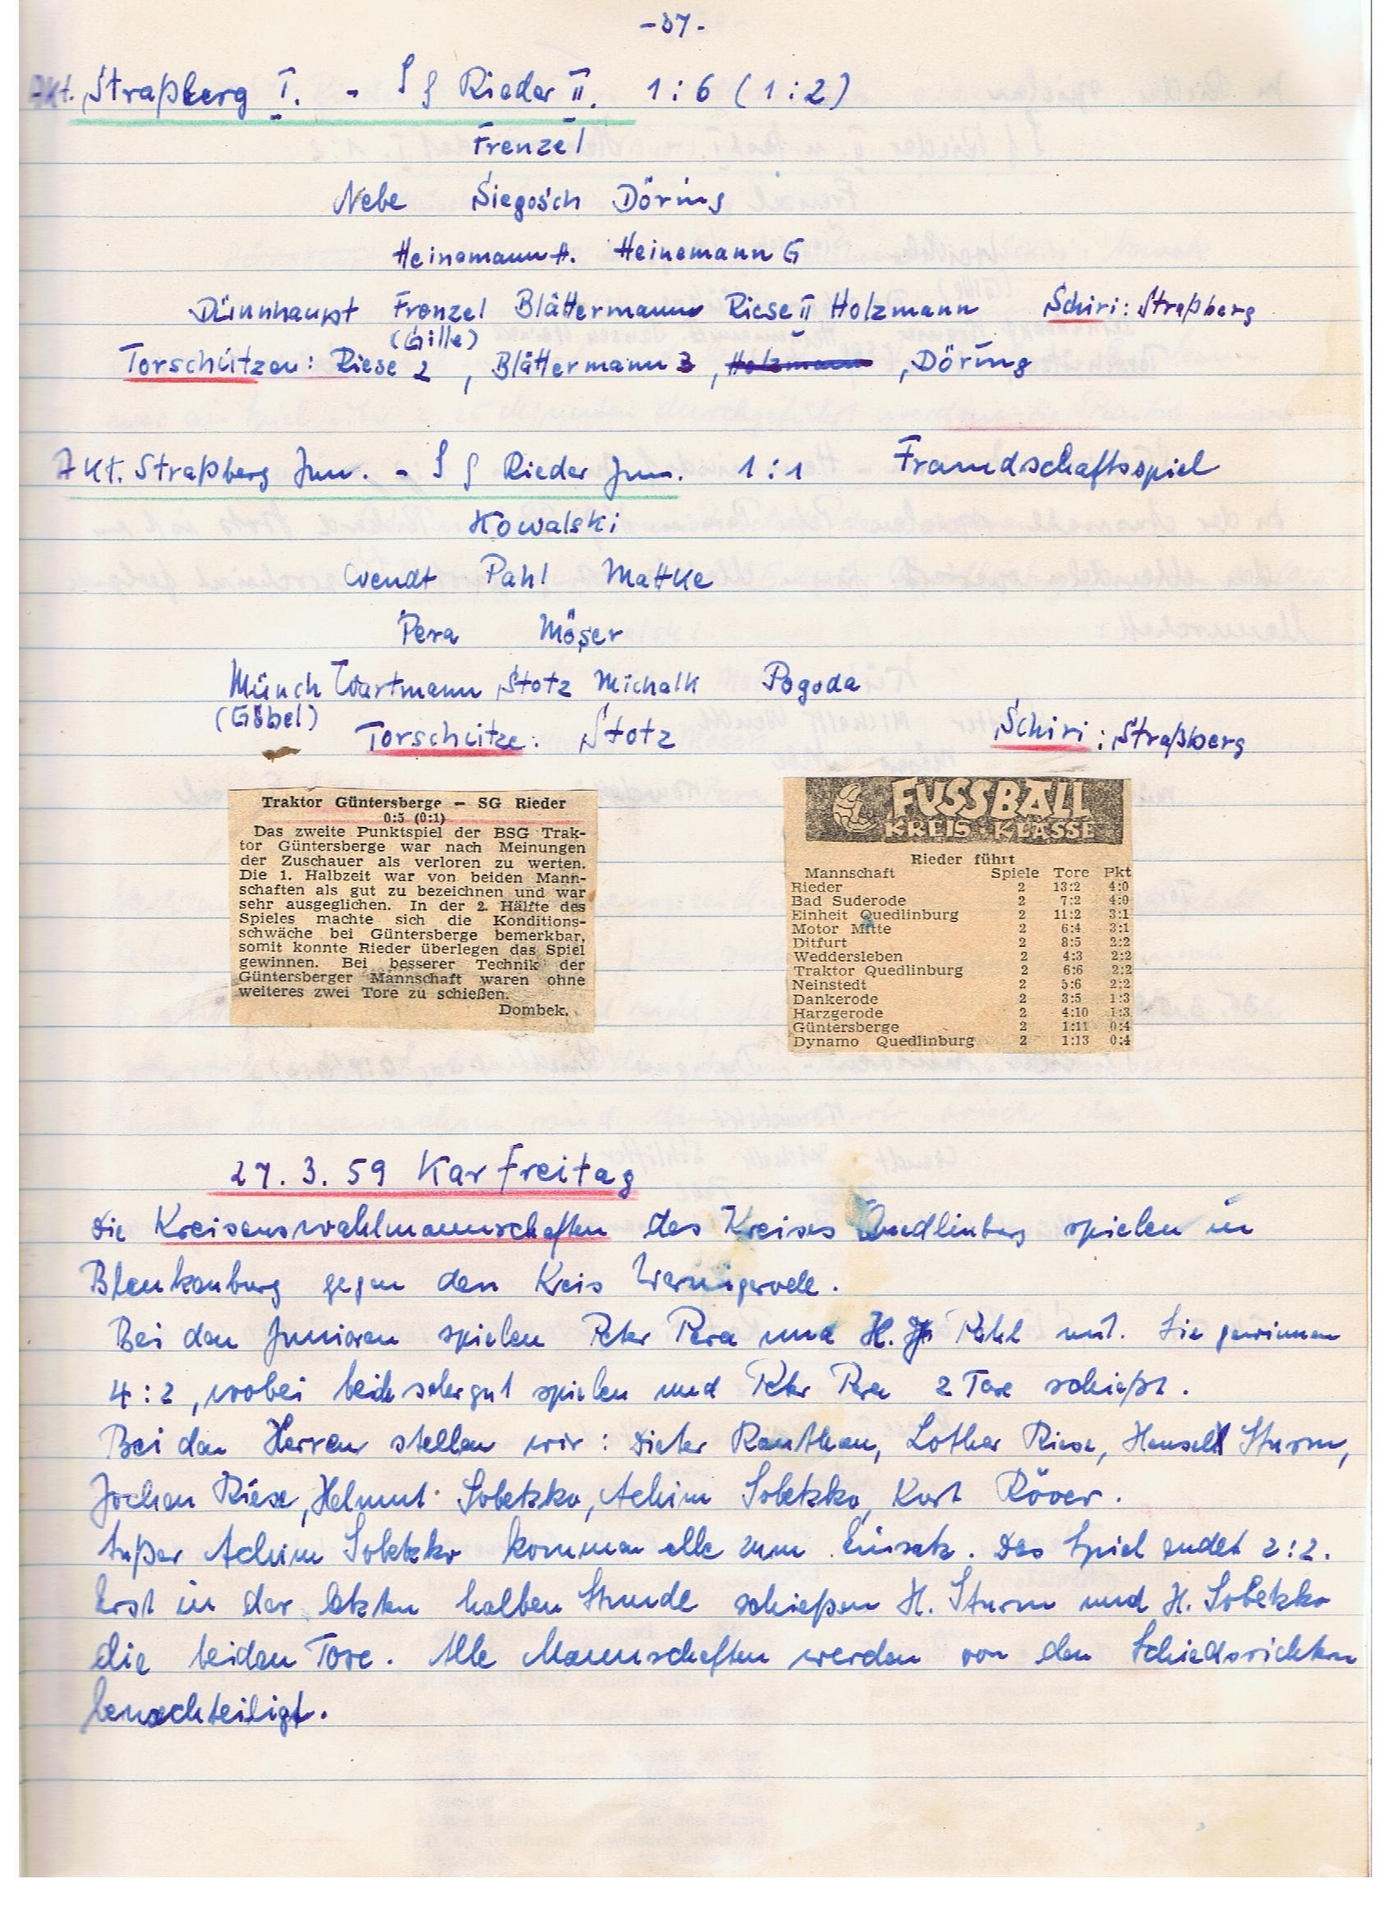 -37-
Akt. Straßberg I. - SG Rieder II. 1:6 (1:2)
Frenzel
Nebe Siegosch Döring
Heinemann A. Heinemann G
Dünnhaupt Frenzel Blättermann Riese II Holzmann Schiri: Straßberg
(Gille)
Torschützen: Riese 2, Blättermann 3, Holzmann, Döring
Akt. Straßberg Jun. - SG Rieder Jun. 1:1 Freundschaftsspiel
Kowalski
Wendt Pahl Mattke
Pera Möser
Münch Wartmann Stotz Michalk Pogoda
(Göbel)
Torschütze: Stotz Schiri: Straßberg
Traktor Güntersberge — SG Rieder
0:5 (0:1)
Das zweite Punktspiel der BSG Trak-
tor Güntersberge war nach Meinungen
der Zuschauer als verloren zu werten.
Die 1. Halbzeit war von beiden Mann-
schaften als gut zu bezeichnen und war
sehr ausgeglichen. In der 2. Hälfte des
Spieles machte sich die Konditions-
schwäche bei Güntersberge bemerkbar,
somit konnte Rieder überlegen das Spiel
gewinnen. Bei besserer Technik der
Güntersberger Mannschaft waren ohne
weiteres zwei Tore zu schießen.
Dombek.
FUSSBALL
KREIS-KLASSE
Rieder führt
Mannschaft Spiele Tore Pkt
Rieder 2 13:2 4:0
Bad Suderode 2 7:2 4:0
Einheit Quedlinburg 2 11:2 3:1
Motor Mitte 2 6:4 3:1
Ditfurt 2 8:5 2:2
Weddersleben 2 4:3 2:2
Traktor Quedlinburg 2 6:6 2:2
Neinstedt 2 5:6 2:2
Dankerode 2 3:5 1:3
Harzgerode 2 4:10 1:3
Güntersberge 2 1:11 0:4
Dynamo Quedlinburg 2 1:13 0:4
27.3.59 Karfreitag
Die Kreisauswahlmannschaften des Kreises Quedlinburg spielen in
Blankenburg gegen den Kreis Wernigerode.
Bei den Junioren spielen Peter Pera und H. Pahl mit. Sie gewinnen
4:2, wobei beide sehr gut spielen und Peter Pera 2 Tore schießt.
Bei den Herren stellen wir: Dieter Rauthan, Lothar Riese, Hansell Sturm,
Jochen Riese, Helmut Sobetzko, Achim Sobetzko, Kurt Röver.
Außer Achim Sobetzko kommen alle zum Einsatz. Das Spiel endet 2:2.
Erst in der letzten halben Stunde schießen H. Sturm und H. Sobetzko
die beiden Tore. Alle Mannschaften werden von den Schiedsrichtern
benachteiligt.